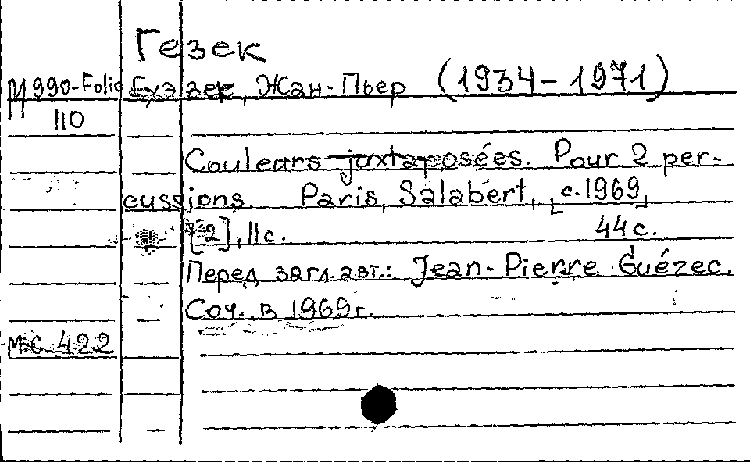 Гезек
М 990-Folio Гузек, Жан-Пьер (1934-1971)
110
Couleurs juxtaposées. Pour 2 per-
cussions Paris, Salabert, [c.1969]
[2], 11 с. 44 с.
Перед загл. авт.: Jean-Pierre Guézec.
Соч. в 1969 г.
МС 422